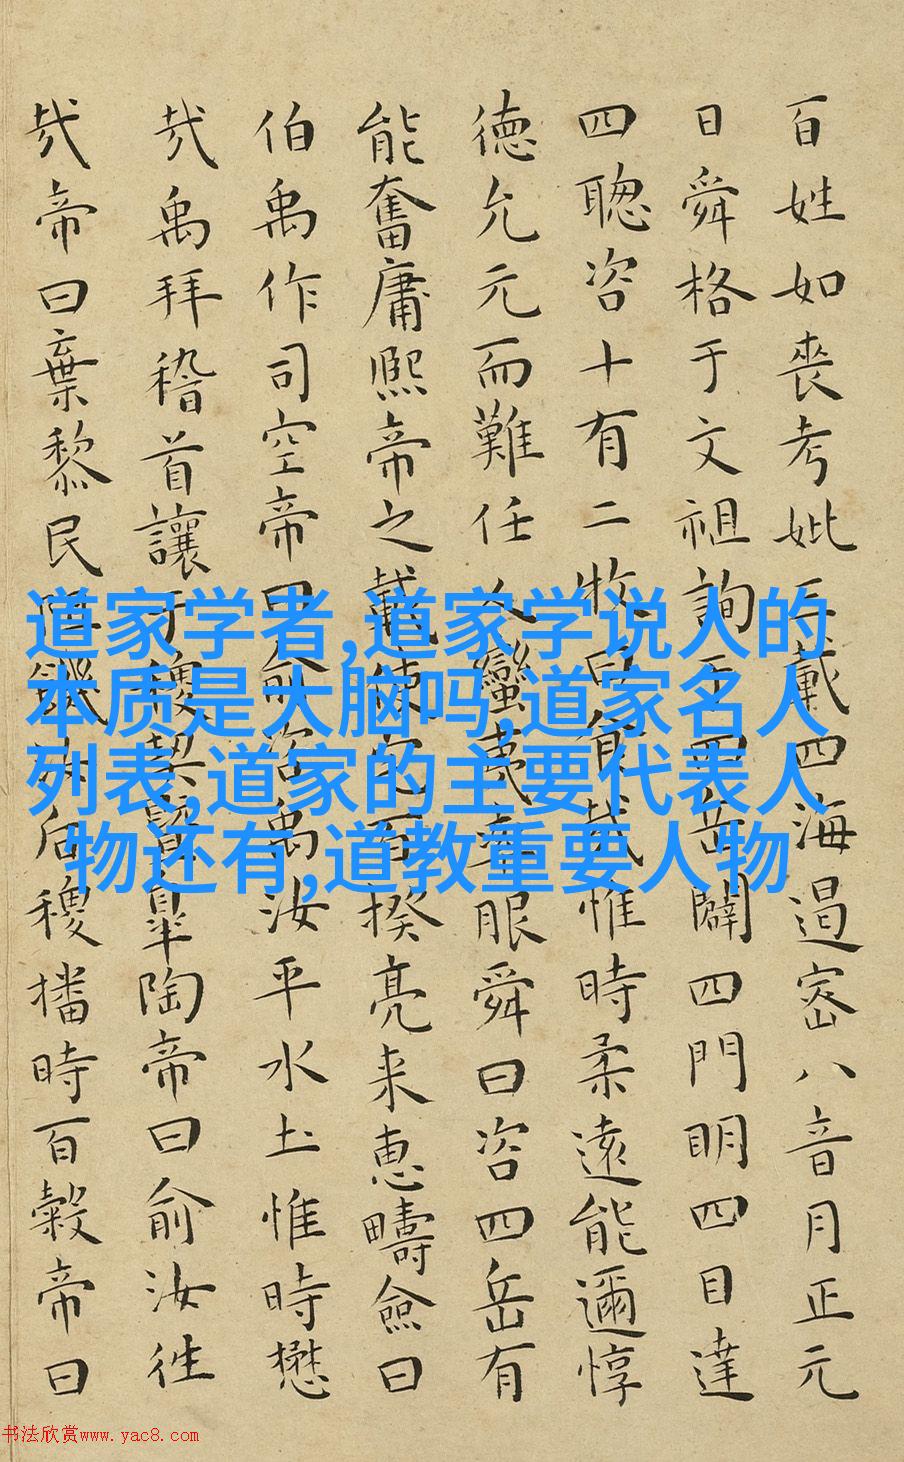 百姓如喪考妣三載四海遏密八音月正元
日舜格于文祖詢于四岳闢四門明四目達
四聰咨十有二牧曰食哉惟時柔遠能邇惇
德允元而難任人蠻夷率服舜曰咨四岳有
能奮庸熙帝之載使宅百揆亮采惠疇僉曰
伯禹作司空帝曰俞咨禹汝平水土惟時懋
哉禹拜稽首讓于稷契暨皋陶帝曰俞汝往
哉帝曰棄黎民阻饑汝后稷播時百穀帝曰
道家学者,道家学说人的
本质是大脑吗,道家名人
列表,道家的主要代表人
物还有,道教重要人物
书法欣赏www.yac8.com